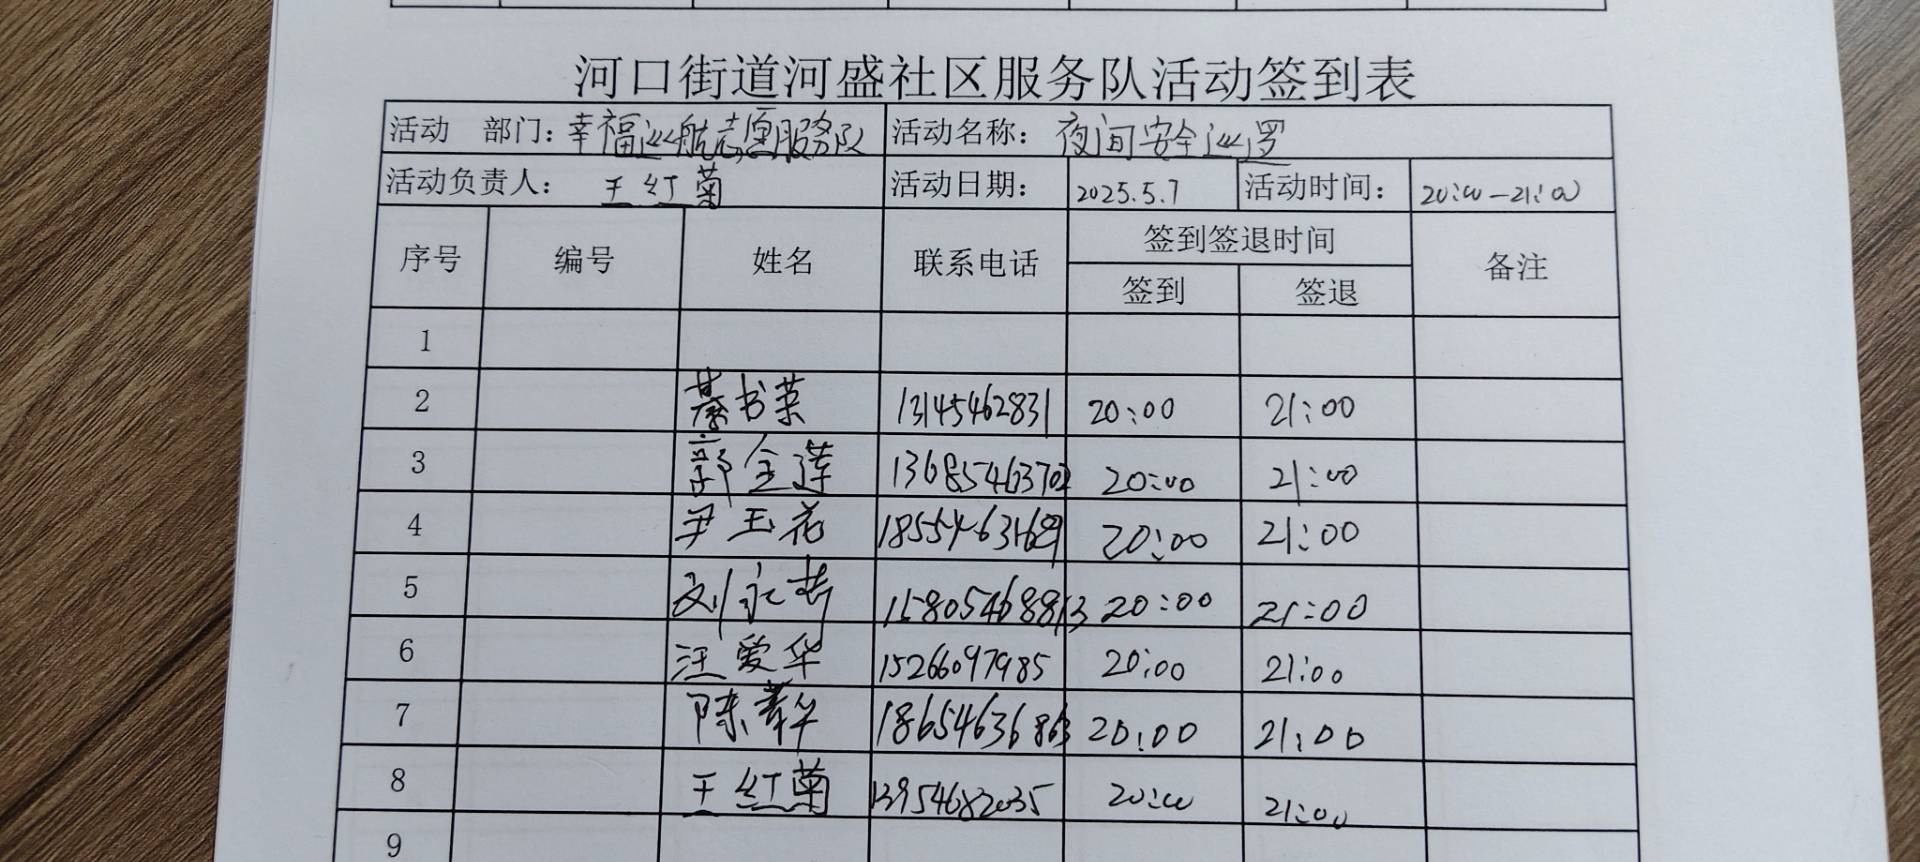 河口街道河盛社区服务队活动签到表
活动 部门：幸福巡航志愿服务队 活动名称：夜间安全巡罗
活动负责人： 王红菊 活动日期： 2025.5.7 活动时间： 20:00-21:00
序号 编号 姓名 联系电话 签到签退时间 备注
签到 签退
1
2 綦书荣 13145462831 20:00 21:00
3 郭金莲 20:00 21:00
4 尹玉花 20:00 21:00
5 刘永 20:00 21:00
6 汪爱华 15266097985 20:00 21:00
7 陈 华 20:00 21:00
8 王红菊 13954682035 20:00 21:00
9